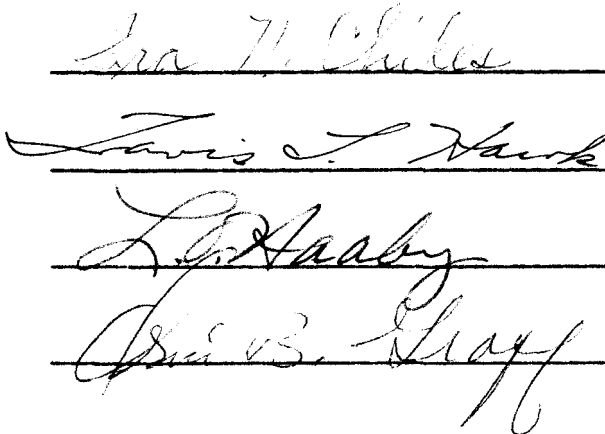 Ira N. Chiles
Travis L. Hawk
L. O. Haaby
B. Graff